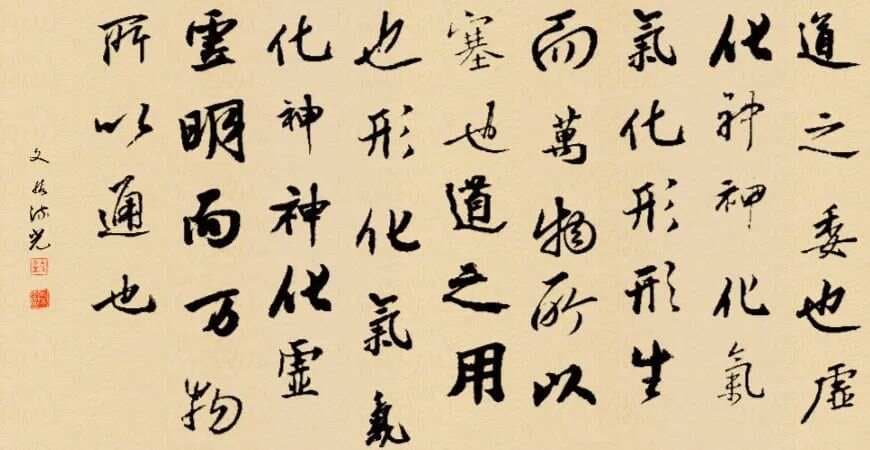 道之委也虛
化神神化氣
氣化形形生
而萬物所以
塞也道之用
也形化氣氣
化神神化虛
虛明而万物
所以通也